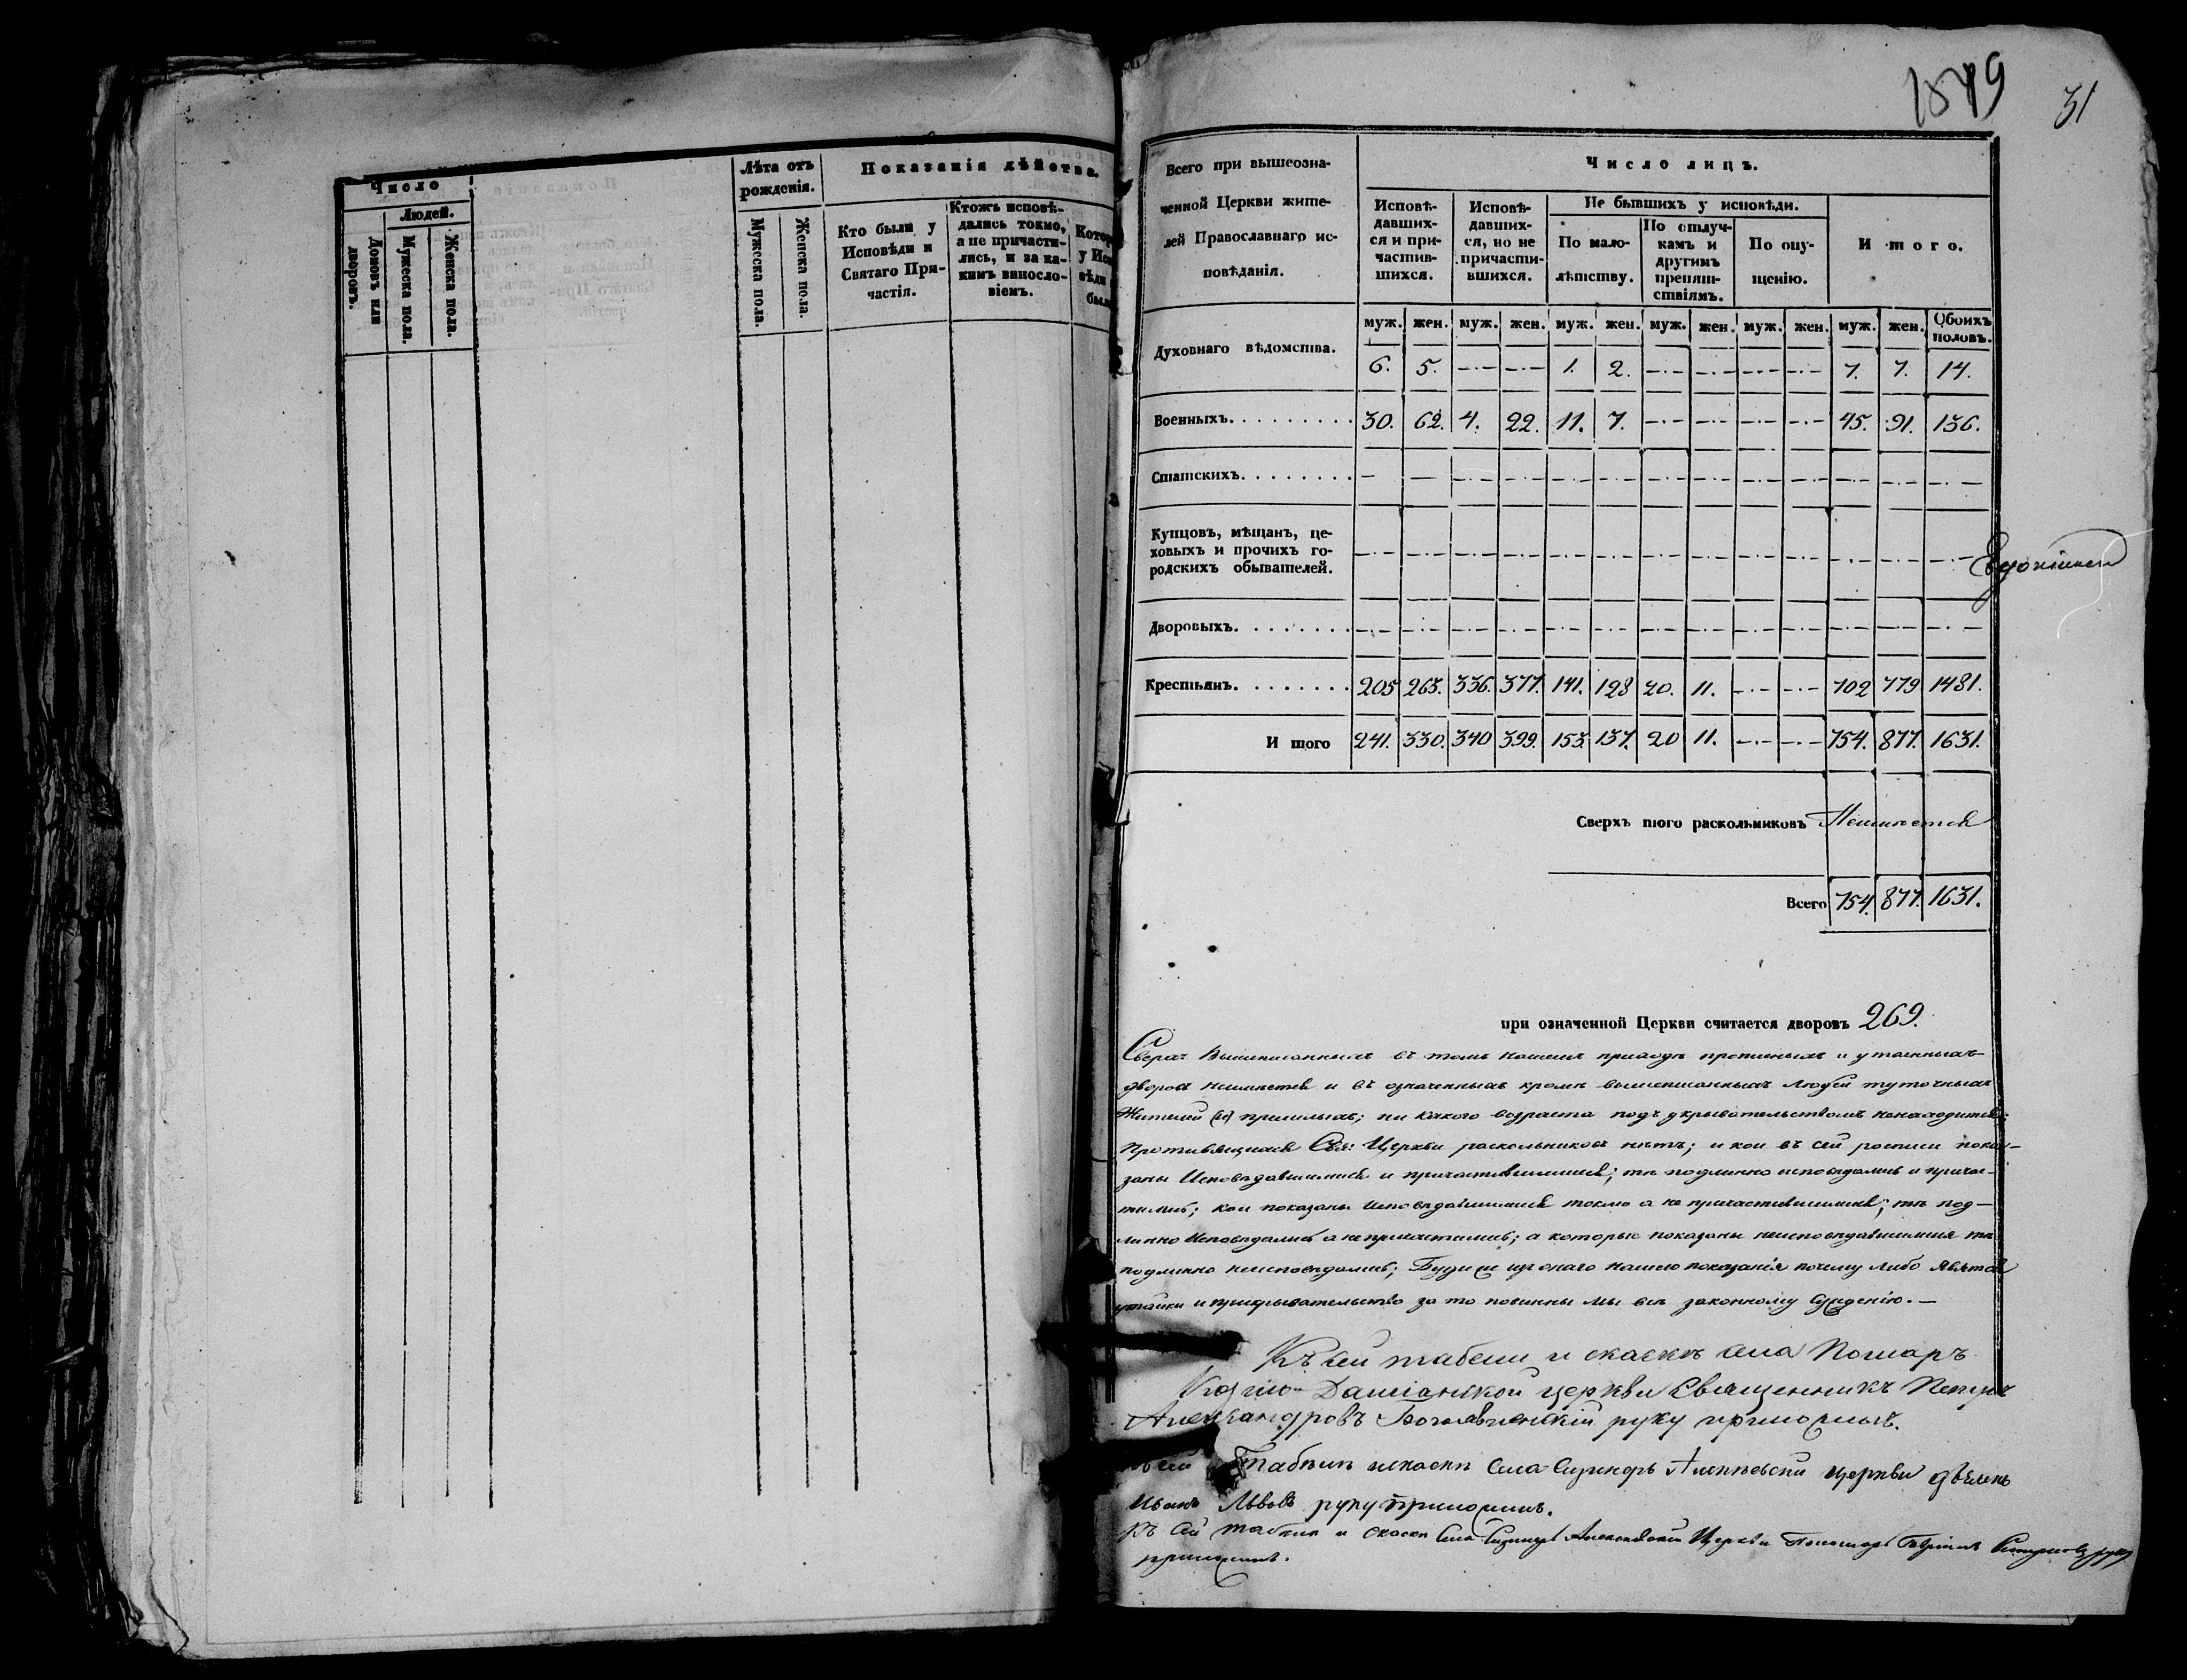 1849
31
Число
Людей.
Домовъ или дворовъ.
Мужеска пола.
Женска пола.
Лѣта отъ рожденія.
Мужеска пола.
Женска пола.
Показанія дѣйства.
Кто были у Исповѣди и Святаго Причастія.
Ктожъ исповѣ-
дались токмо,
а не причасти-
лись, и за ка-
кимъ винословіемъ.
Всего при вышеозна-
ченной Церкви жите-
лей Православнаго ис-
повѣданія.
Число лицъ.
Исповѣ-
давших-
ся и при-
частив-
шихся.
Исповѣ-
давших-
ся, но не
причасти-
вшихся.
Не бывшихъ у исповѣди.
По мало-
лѣтству.
По отлуч-
камъ и
другимъ
препят-
ствіямъ.
По опу-
щенію.
Итого.
муж. жен. муж. жен. муж. жен. муж. жен. муж. жен. муж. жен. Обоихъ половъ.
Духовнаго вѣдомства. 6. 5. —·— —·— 1. 2. —·— —·— —·— —·— 7. 7. 14.
Военныхъ. 30. 62. 4. 22. 11. 7. —·— —·— —·— —·— 45. 91. 136.
Статскихъ. — — —·— —·— —·— —·— —·— —·— —·— —·— —·— —·— —·—
Купцовъ, мѣщанъ, це-
ховыхъ и прочихъ го-
родскихъ обывателей. —·— —·— —·— —·— —·— —·— —·— —·— —·— —·— —·— —·— —·—
Дворовыхъ. —·— —·— —·— —·— —·— —·— —·— —·— —·— —·— —·— —·— —·—
Крестьянъ. 205 263. 336. 377. 141. 128 20. 11. —·— —·— 702 779 1481.
Итого 241. 330. 340 399. 153. 137. 20 11. —·— —·— 754. 877. 1631.
Сверхъ того раскольниковъ Неимѣется
Всего 754. 877. 1631.
при означенной Церкви считается дворовъ 269.
Сверхъ вышеписанныхъ въ томъ нашемъ приходѣ прописныхъ и утаенныхъ
дворовъ неимѣется и въ означенныхъ кромѣ вышеписанныхъ людей туточныхъ
Жителей (и) пришлыхъ; ни какого возраста подъ укрывательствомъ ненаходится;
Противящихся Свя: Церкви раскольниковъ нѣтъ; и кои въ сей росписи пока-
заны Исповѣдавшимися и причастившимися; тѣ подлинно исповѣдались и причас-
тились; кои показаны исповѣдавшимися токмо а не причастившимися; тѣ под-
линно Исповѣдались а непричастились; а которые показаны неисповѣдавшимися тѣ
подлинно неисповѣдались; Буде же изъ онаго нашего показанія почему либо явятся
утайки и прикрывательство за то повинны мы все законному сужденію.—
Къ сей табели и скаскѣ села Помаръ
Козмо-Даміанской церкви Священникъ Петръ
Александровъ Богоявленскій руку приложилъ.
сей Табели искаски села Алексѣевской церкви дьячекъ
Иванъ Львовъ руку приложилъ.
Къ сей табели и скаски села Алексѣевской Церкви Пономарь руку
приложилъ.